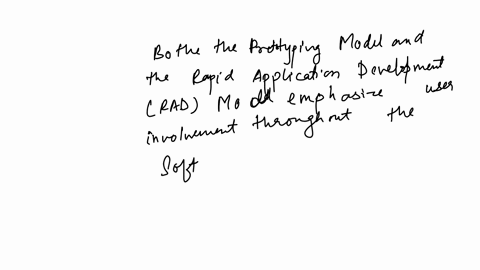 Bothe the Prototyping Model and
the Rapid Application Development
(RAD) Model emphasize user
involvement throughout the
Soft